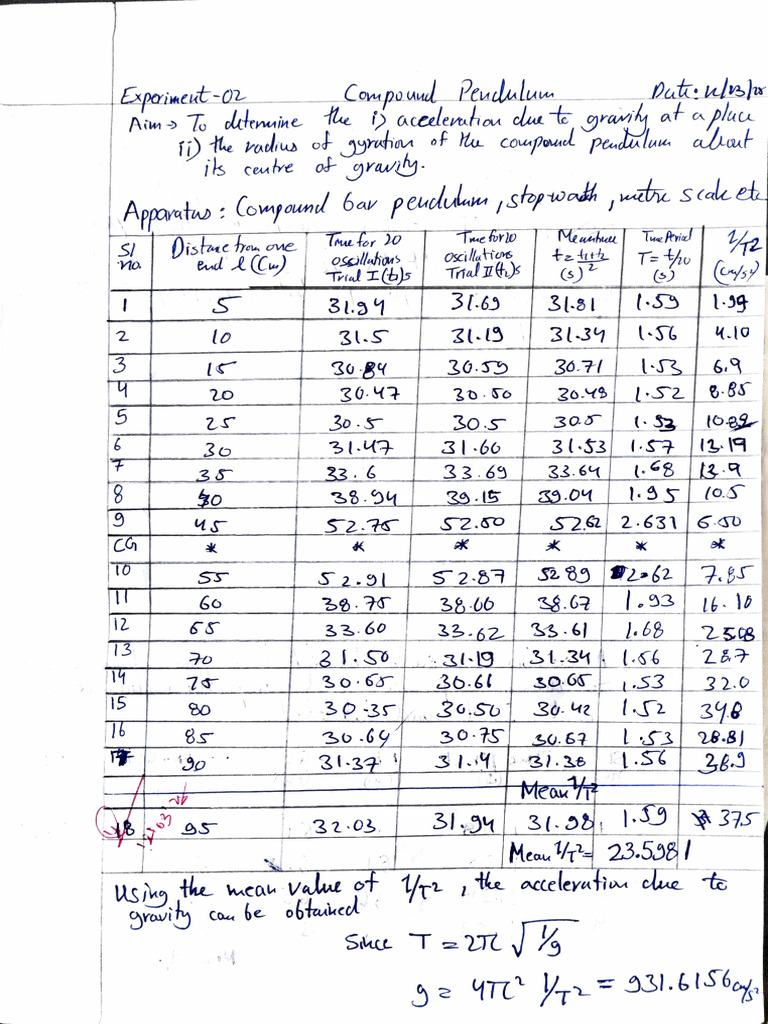 Experiment-02 Compound Pendulum Date: 12/03/25
Aim → To determine the i) acceleration due to gravity at a place
ii) the radius of gyration of the compound pendulum about
its centre of gravity.
Apparatus: Compound bar pendulum, stopwatch, metre scale etc
Sl no. Distance from one end l (Cm) Time for 20 oscillations Trial I (t₁)s Time for 20 oscillations Trial II (t₂)s Mean time t = t₁+t₂/2 (s) Time Period T = t/20 (s) l/T2 (cm/s²)
1 5 31.94 31.69 31.81 1.59 1.99
2 10 31.5 31.19 31.34 1.56 4.10
3 15 30.84 30.59 30.71 1.53 6.9
4 20 30.47 30.50 30.48 1.52 8.85
5 25 30.5 30.5 30.5 1.53
6 30 31.47 31.60 31.53 1.57 13.19
7 35 33.6 33.69 33.64 1.68 13.9
8 40 38.94 39.15 39.04 1.95 10.5
9 45 52.75 52.50 52.62 2.631 6.50
CG * * * * * *
10 55 52.91 52.87 52.89 2.62 7.85
11 60 38.75 38.60 38.67 1.93 16.10
12 65 33.60 33.62 33.61 1.68
13 70 31.50 31.19 31.34 1.56 28.7
14 75 30.65 30.61 30.65 1.53 32.0
15 80 30.35 30.50 30.42 1.52 34.6
16 85 30.64 30.75 30.67 1.53 28.81
17 90 31.37 31.14 31.38 1.56 38.9
Mean l/T²
18 95 32.03 31.94 31.98 1.59 37.5
Mean l/T² = 23.5981
Using the mean value of l/T2, the acceleration due to
gravity can be obtained
Since T = 2π √l/g
g = 4π² l/T2 = 931.6156 cm/s²